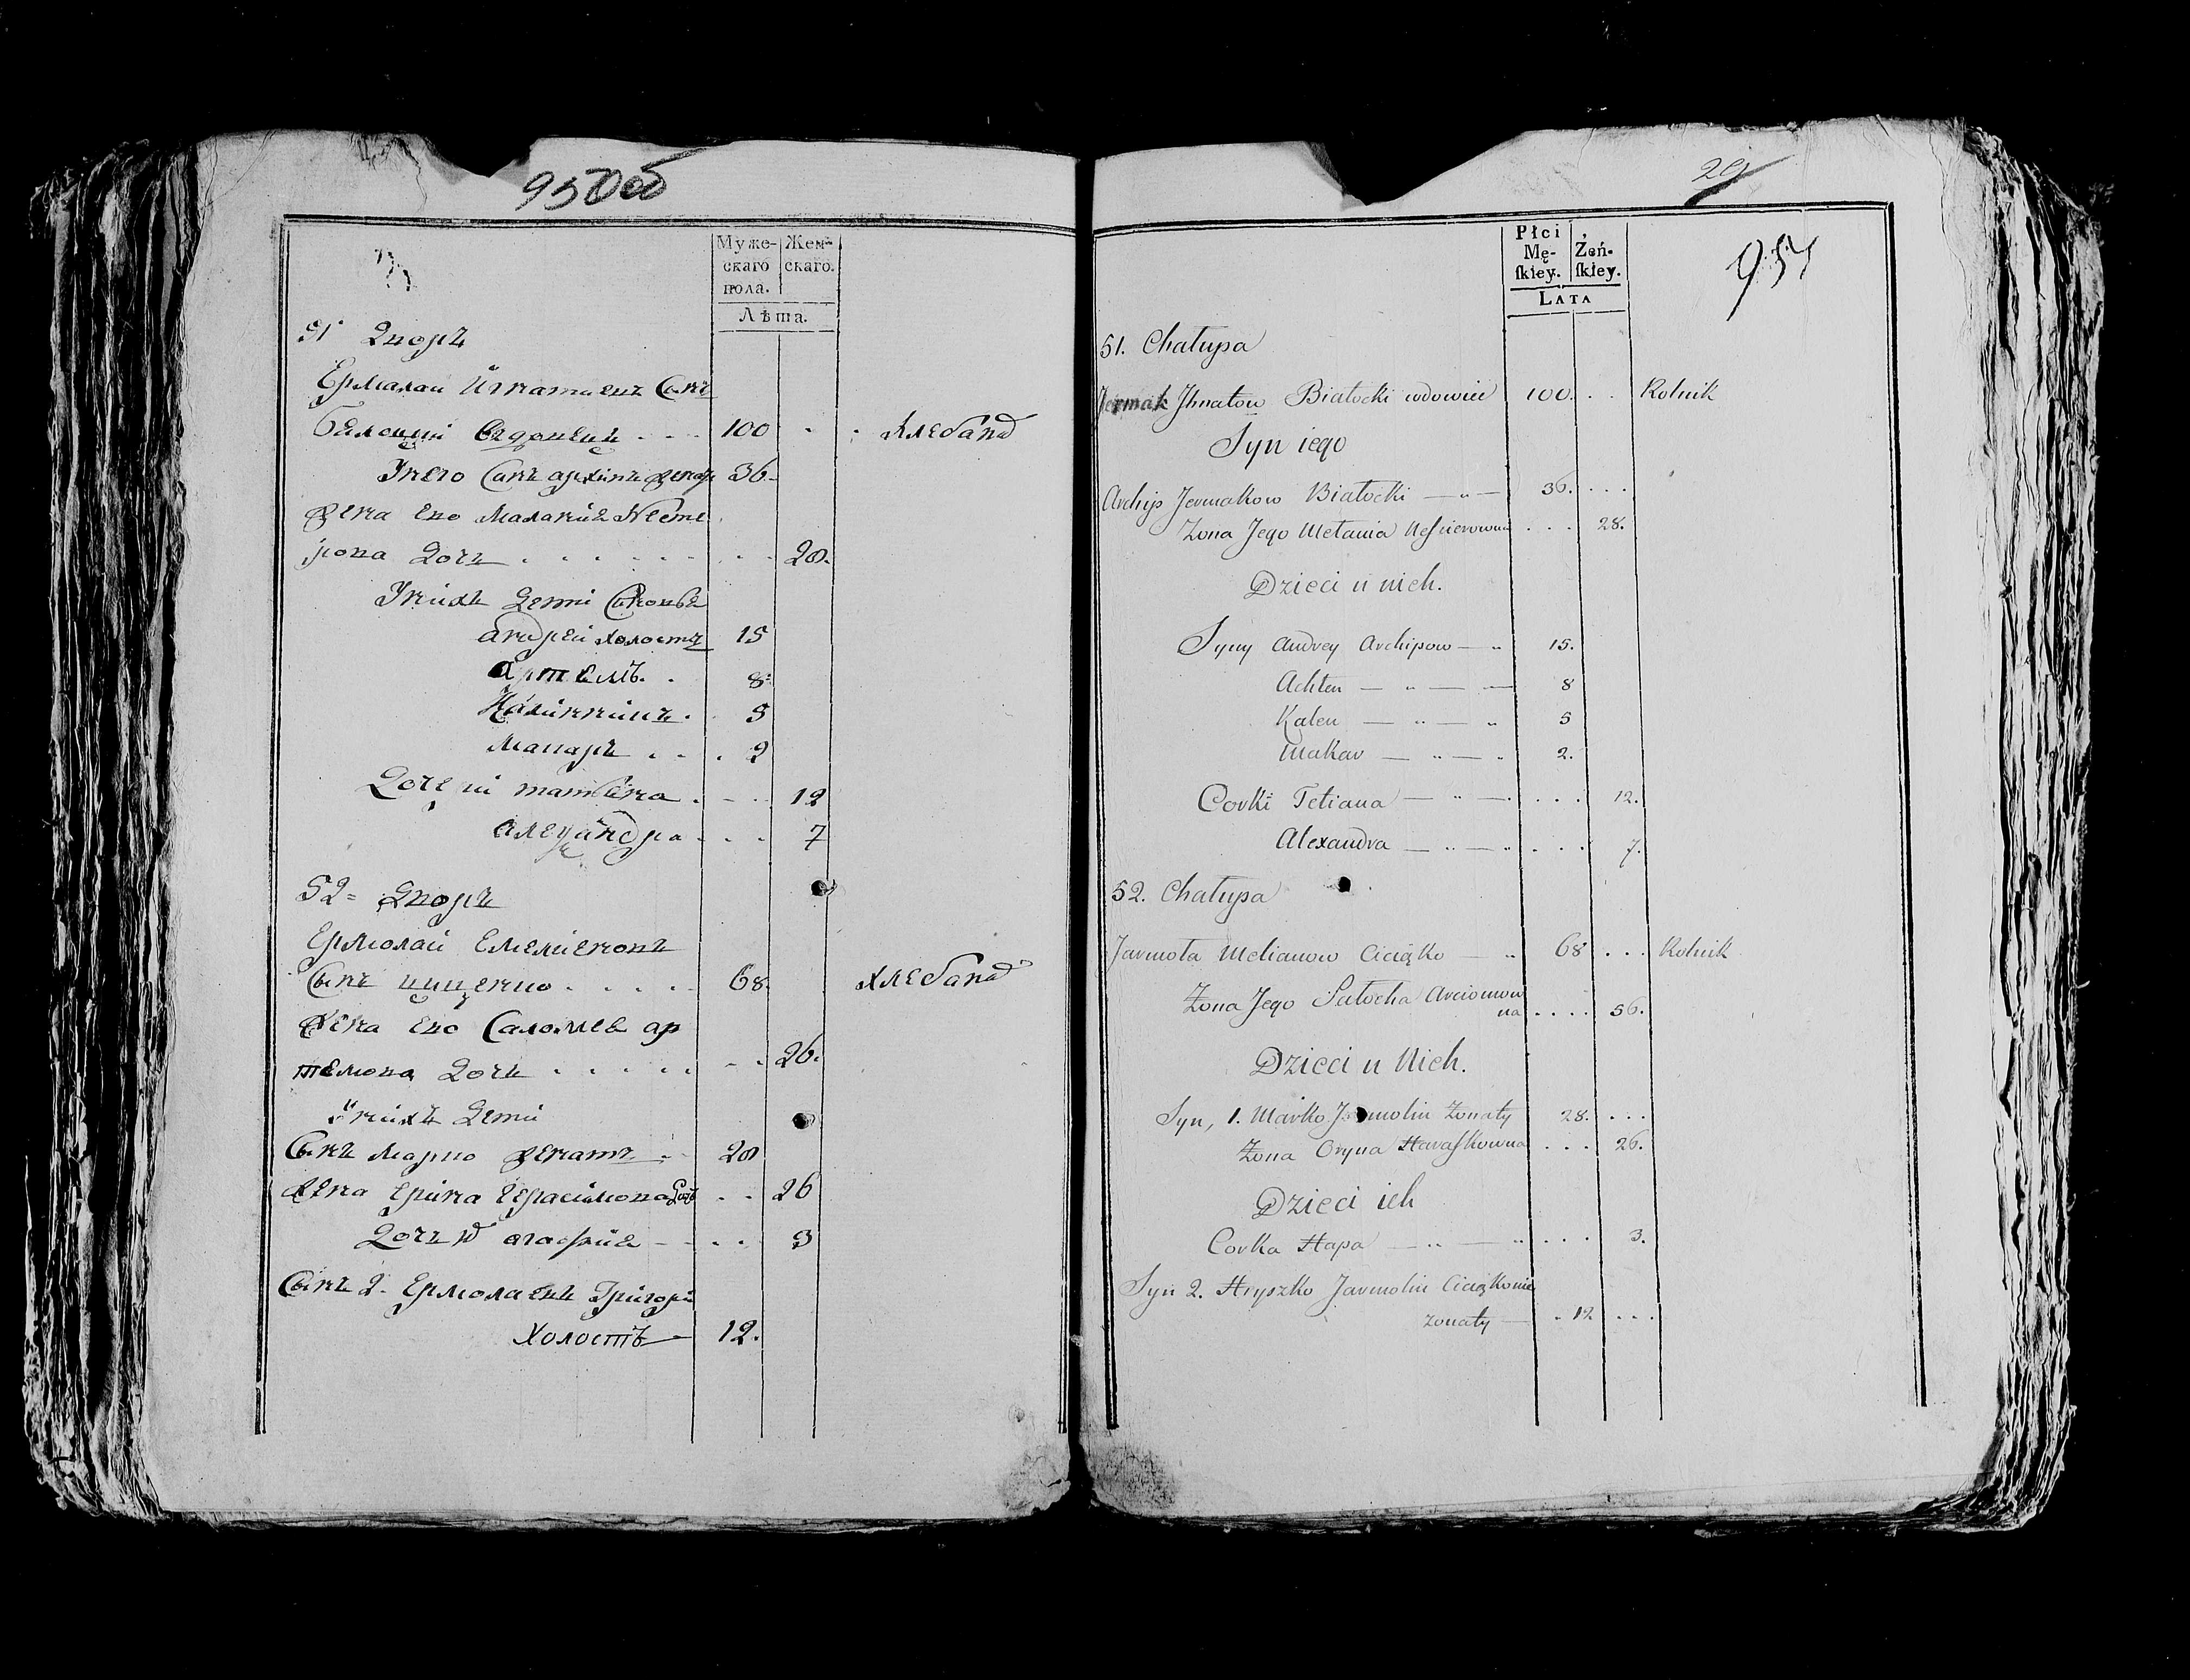 950 об
Муже-
скаго
пола.
Жен-
скаго.
Лѣта.
51 Дворъ
Ермалай Игнатиевъ Сынъ
Белоцкий Вдовецъ 100 Хлебапа
У него Сынъ архипъ женат 36
Жена Ево Малания Несте
рова Дочь 28.
У них Дети Сыновья
андрей холостъ 15
артемъ 8
Калинникъ 5
Макаръ 2
Дочери татьяна 12
александра 7
52 Дворъ
Ермолай Емелиеновъ
Сынъ 68. Хлебапа
Жена Ево Саломея ар
темова Дочь 26.
У нихъ Дети
Сынъ Марко женатъ 28
Жена Ерина Герасимова Дочь 26
Дочь агафия 3
Сынъ 2. Ермолаевъ Григорий
Холостъ 12.
29
951
Płci
Mę-
ſkiey.
Żeń-
ſkiey.
LATA
51. Chałupa
Jermak Jhnatow Białocki wdowiec 100. . . Rolnik
Syn iego
Archip Jermakow Białocki 36. . . .
Zona Jego Melania Neſcierowna . . . 28.
Dzieci u nich.
Syny Andrey Archipow 15.
Achten 8
Kalen 5
Makar 2.
Corki Tetiana . . . 12.
Alexandra . . . 7.
52. Chałupa
Jarmoła Melianow Ciciąko 68 . . . Rolnik
Żona Jego Sałocha Arciomow
na . . . . 56.
Dzieci u Nich.
Syn, 1. Marko Jarmolin Żonaty 28. . . .
Żona Oryna Haraſkowna . . . 26.
Dzieci ich
Corka Hapa . . . 3.
Syn 2. Hryszko Jarmolin Ciciąkonie
żonaty . 12 . . .